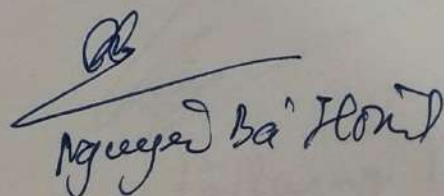 Nguyễn Bá Hoàn